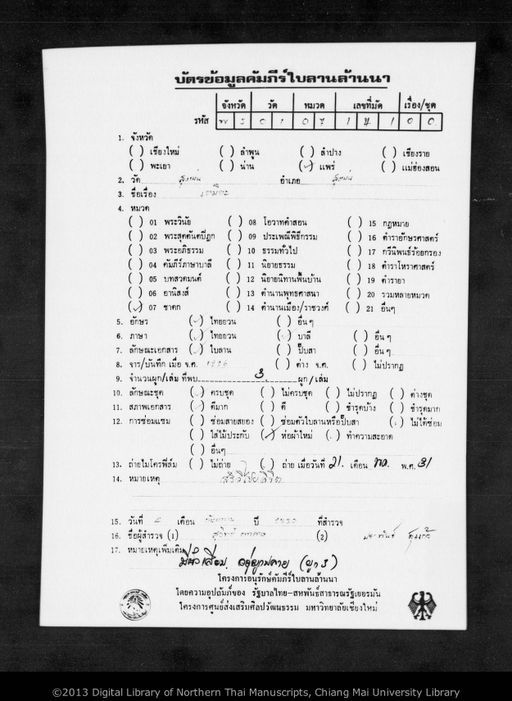 บัตรข้อมูลคัมภีร์ใบลานล้านนา
จังหวัด วัด หมวด เลขที่มัด เรื่อง/ชุด
รหัส พ ร 0 1 0 7 1 1 0 0
1. จังหวัด
( ) เชียงใหม่ ( ) ลำพูน ( ) ลำปาง ( ) เชียงราย
( ) พะเยา ( ) น่าน (✓) แพร่ ( ) แม่ฮ่องสอน
2. วัด สูงเม่น อำเภอ สูงเม่น
3. ชื่อเรื่อง
4. หมวด
( ) 01 พระวินัย ( ) 08 โอวาทคำสอน ( ) 15 กฎหมาย
( ) 02 พระสุตตันตปิฎก ( ) 09 ประเพณีพิธีกรรม ( ) 16 ตำราอักษรศาสตร์
( ) 03 พระอภิธรรม ( ) 10 ธรรมทั่วไป ( ) 17 กวีนิพนธ์ร้อยกรอง
( ) 04 คัมภีร์ภาษาบาลี ( ) 11 นิยายธรรม ( ) 18 ตำราโหราศาสตร์
( ) 05 บทสวดมนต์ ( ) 12 นิยายนิทานพื้นบ้าน ( ) 19 ตำรายา
( ) 06 อานิสงส์ ( ) 13 ตำนานพุทธศาสนา ( ) 20 รวมหลายหมวด
(✓) 07 ชาดก ( ) 14 ตำนานเมือง/ราชวงศ์ ( ) 21 อื่นๆ
5. อักษร (✓) ไทยยวน ( ) อื่นๆ
6. ภาษา (✓) ไทยยวน ( ) บาลี ( ) อื่นๆ
7. ลักษณะเอกสาร (✓) ใบลาน ( ) ปั๊บสา ( ) อื่นๆ
8. จาร/บันทึก เมื่อ จ.ศ. ( ) ต่าง จ.ศ. ( ) ไม่ปรากฏ
9. จำนวนผูก/เล่ม ที่พบ 3 ผูก/เล่ม
10. ลักษณะชุด (✓) ครบชุด ( ) ไม่ครบชุด ( ) ไม่ปรากฏ ( ) ต่างชุด
11. สภาพเอกสาร (✓) ดีมาก ( ) ดี ( ) ชำรุดบ้าง ( ) ชำรุดมาก
12. การซ่อมแซม ( ) ซ่อมสายสยอง ( ) ซ่อมตัวใบลานหรือปั๊บสา ( ) ไม่ได้ซ่อม
( ) ใส่ไม้ประกับ (✓) ห่อผ้าใหม่ ( ) ทำความสะอาด
( ) อื่นๆ
13. ถ่ายไมโครฟิล์ม ( ) ไม่ถ่าย ( ) ถ่าย เมื่อวันที่ 21 เดือน พ.ศ. 31
14. หมายเหตุ
15. วันที่ เดือน ปี ที่สำรวจ
16. ชื่อผู้สำรวจ (1) (2)
17. หมายเหตุเพิ่มเติม
โครงการอนุรักษ์คัมภีร์ใบลานล้านนา
โดยความอุปถัมภ์ของ รัฐบาลไทย-สหพันธ์สาธารณรัฐเยอรมัน
โครงการศูนย์ส่งเสริมศิลปวัฒนธรรม มหาวิทยาลัยเชียงใหม่
©2013 Digital Library of Northern Thai Manuscripts, Chiang Mai University Library